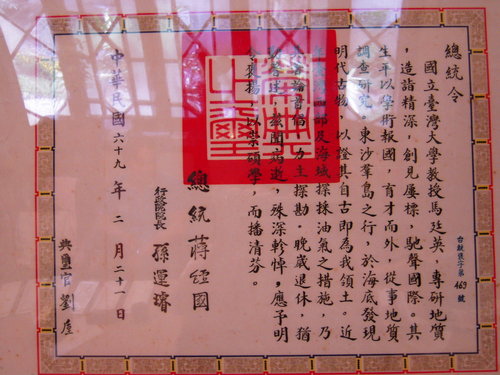 總統令
國立臺灣大學教授馬廷英，專研地質
，造詣精深，創見屢標，馳聲國際。其
生平以學術報國，育才而外，從事地質
調查研究。東沙羣島之行，於海底發現
明代古物，以證其自古即為我領土。近
部及海域探採油氣之措施，乃
論首倡，力主探勘。晚歲退休，猶
著述。茲聞溘逝，殊深軫悼，應予明
令褒揚，以崇碩學，而播清芬。
總統 蔣經國
行政院院長 孫運璿
中華民國六十九年二月二十一日
典璽官劉垕
字第469號
榮典之璽